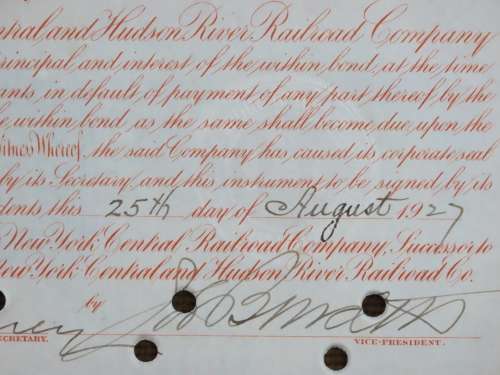 entral and Hudson River Railroad Company
rincipal and interest of the within bond, at the time
ants in default of payment of any part thereof by the
e within bond as the same shall become due, upon the
itness Whereof, the said Company has caused its corporate seal
by its Secretary, and this instrument to be signed by its
dents this 25th day of August 1927
New York Central Railroad Company, Successor to
New York Central and Hudson River Railroad Co.
by
ECRETARY. VICE-PRESIDENT.